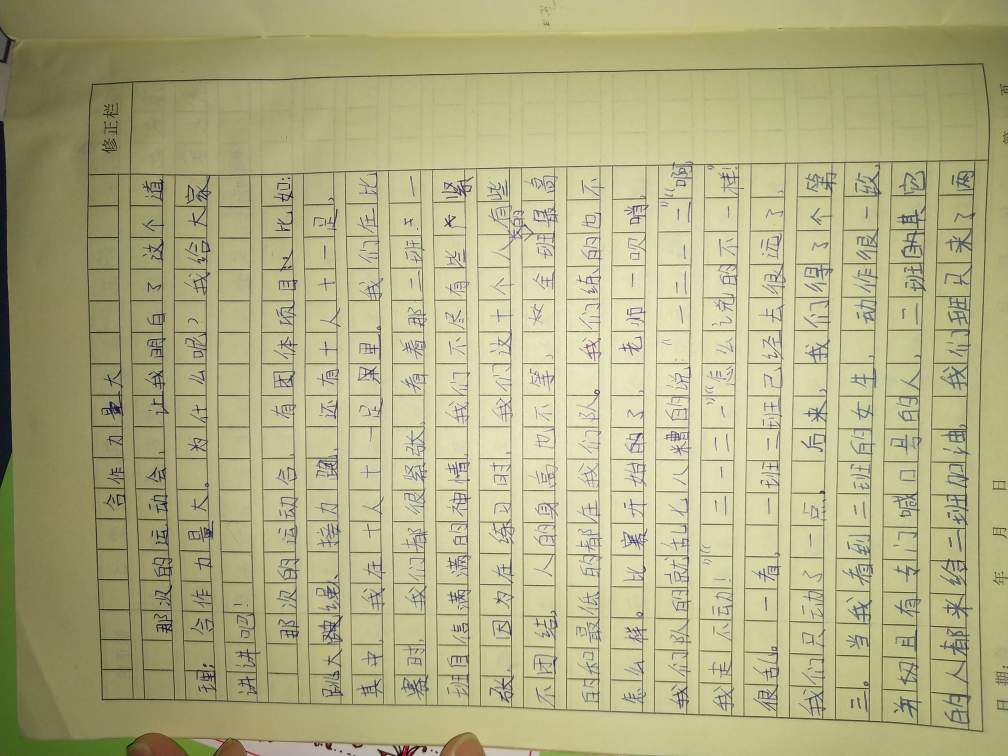 修正栏
合作力量大
那次的运动会，让我明白了这个道
理：合作力量大。为什么呢？我给大家
讲讲吧！
那次的运动会，有团体项目，比如：
跳大跳绳、接力跑，还有十人十一足，
其中，我在十人十一足里。我们在比
赛时，我们都很紧张，看着那二班
一
班自信满满的神情，我们不尽有些紧
张，因为在练习时，我们这十个人有些
不团结，人的身高也不等，全班最高
的和最低的都在我们队。我们练的也不
怎么样。比赛开始的了，老师一吹哨，
我们队的就乱七八糟的说：“一二一二一”“啊，
我走不动！”“二一二一”“怎么说的不一样！”
很乱。一看，一班二班已经去很远了，
我们只动了一点，后来，我们得了个第
三。当我看到二班的女生，动作很一致，
并切且有专门喊口号的人，二班的其它
的人都来给二班加油，我们班只来了两
日期： 年 月 日 第 页